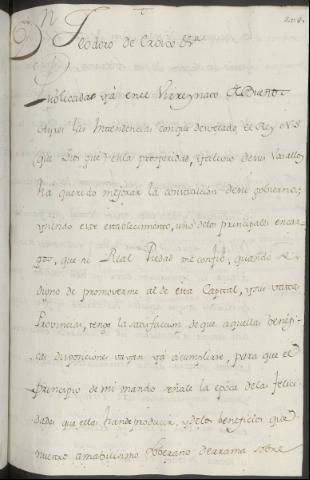 Dn Teodoro de Croix &ra
Publicadas yá en el Virreynato de Buenos
Ayres las Intendencias con que deseando el Rey N. S.
que Dios gue. en la prosperidad, y alivio de sus Vasallos
ha querido mejorar la constitucion de su gobierno;
y siendo este establecimiento, uno de los principales encar
gos, que su Real Piedad me confió, quando se
digno de promoverme al de esta Capital, y sus vastas
Provincias, tengo la satisfaccion de que aquellas benefi
cas disposiciones vayan yá á cumplirse, para que el
principio de mi mando señale la epoca de las felici
dades que ellas han de producir, y de los beneficios que
nuestro amabilisimo Soberano derrama sobre